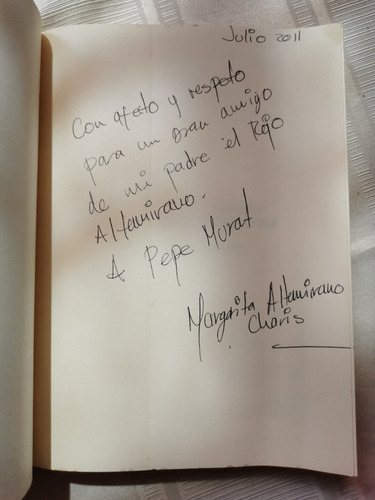 Julio 2011
Con afeto y respeto
para un gran amigo
de mi padre el Rojo
Altamirano.
A Pepe Murat
Margarita Altamirano
Charis